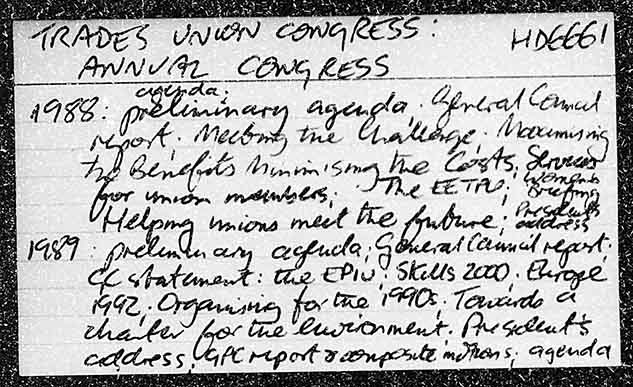 TRADES UNION CONGRESS: HD6661
ANNUAL CONGRESS
agenda;
1988: preliminary agenda; General Council
report; Meeting the Challenge; Maximising
the Benefits Minimising the Costs; Services
for union members; The EETPU; Women's Briefing
Helping unions meet the future; President's address
1989: preliminary agenda; General Council report;
GC statement: the EPIU; Skills 2000; Europe
1992; Organising for the 1990s; Towards a
charter for the environment; President's
address; GPC report & composite motions; agenda